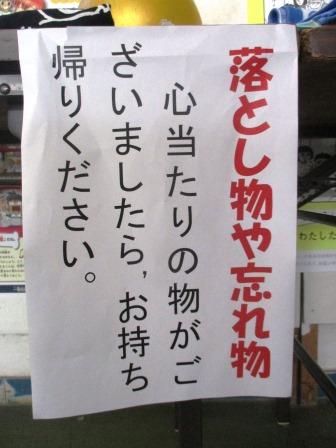 落とし物や忘れ物
心当たりの物がご
ざいましたら,お持ち
帰りください。
わたした